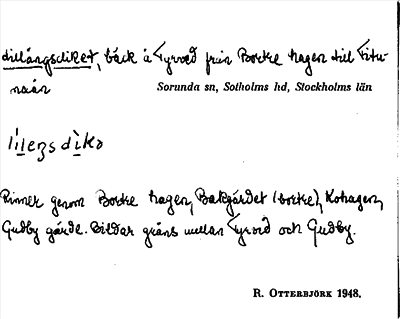 Lillängsdiket, bäck å Fyrved från Bortre hagen till Fitu-
naån
Sorunda sn, Sotholms hd, Stockholms län
Rinner genom Bortre hagen, Bakgärdet (bortre), Kohagen,
Gudby gärde. Bildar gräns mellan Fyrved och Gudby.
R. OTTERBJÖRK 1948.